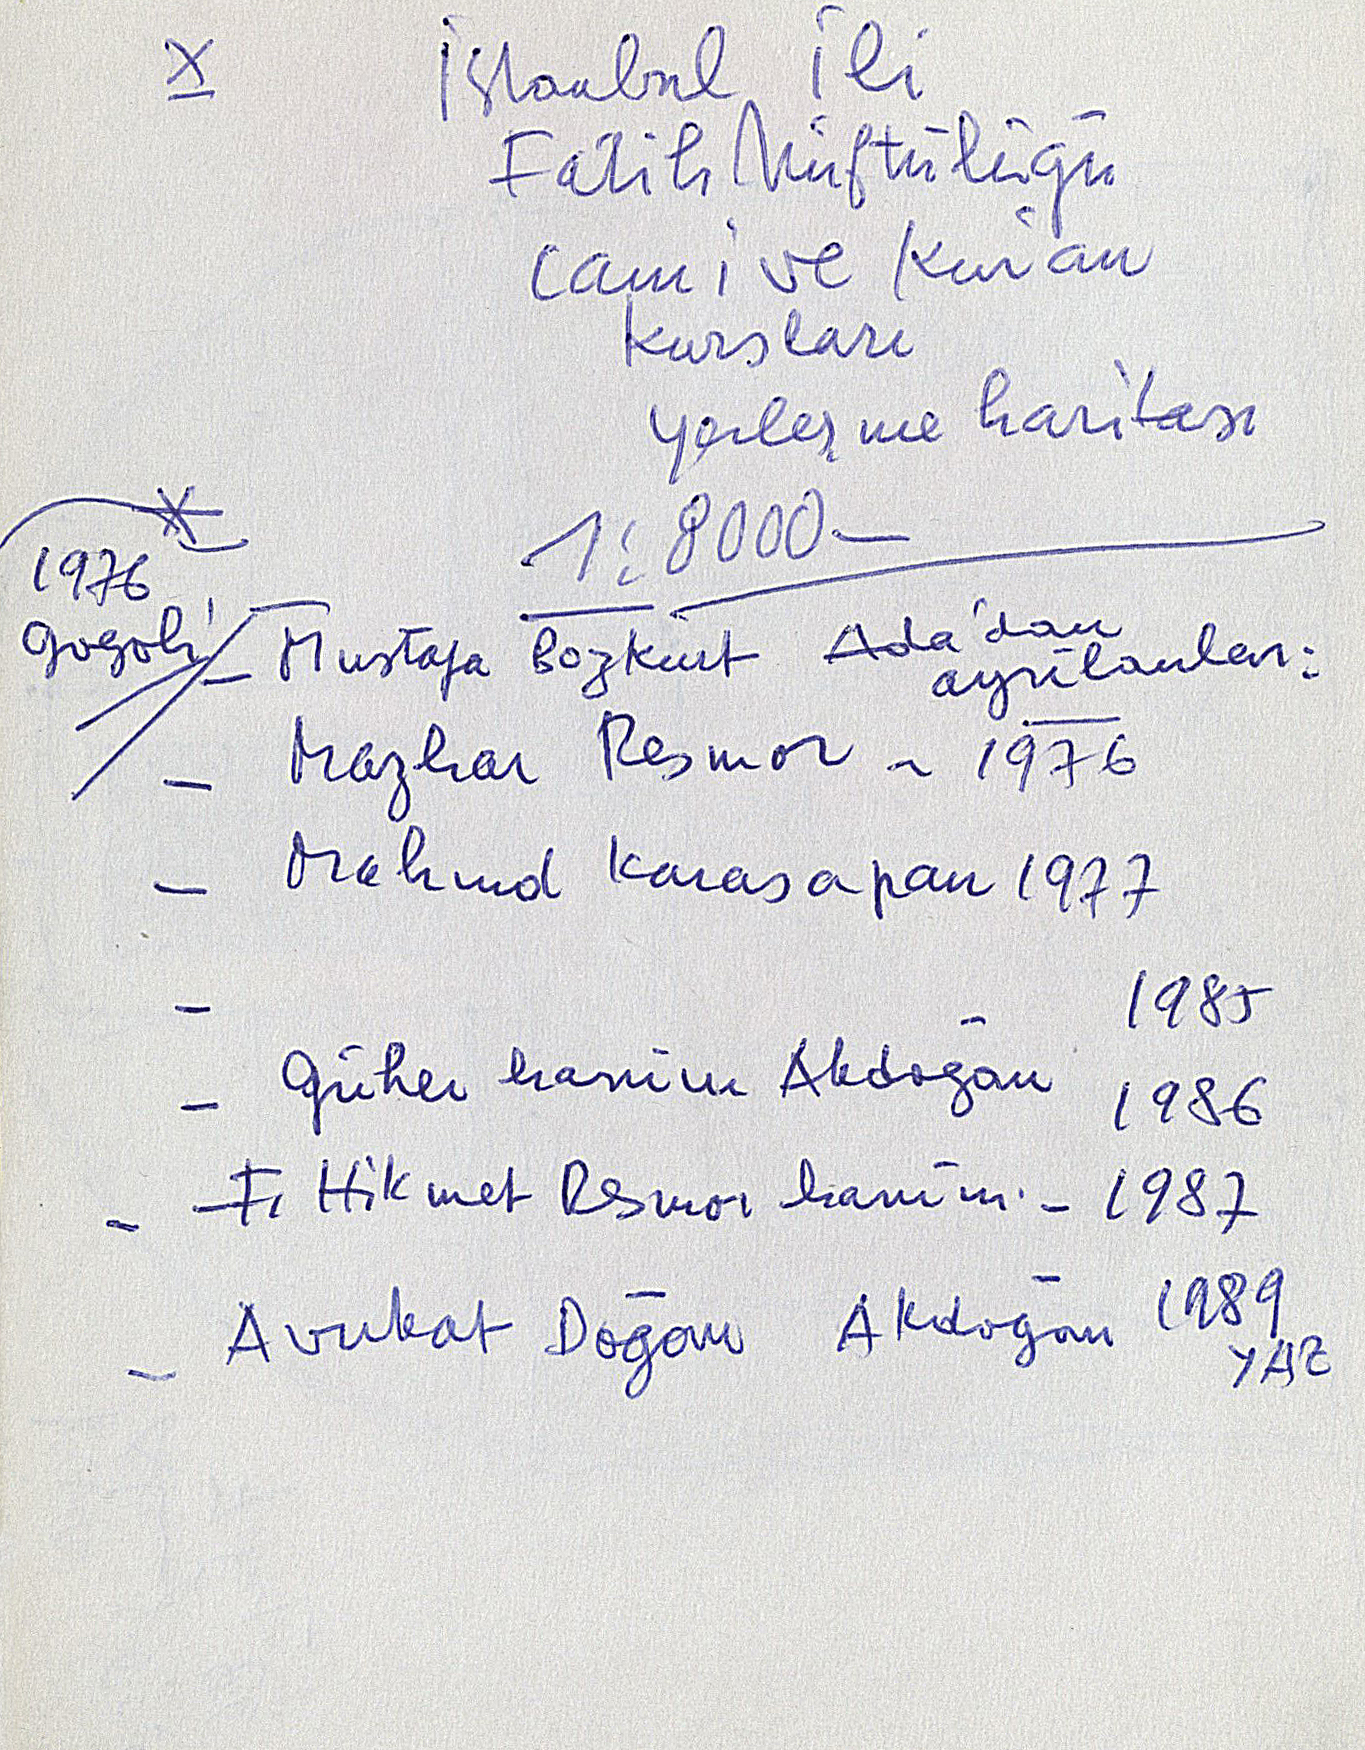 X İstanbul İli
Fatih Müftülüğü
cami ve Kur'an
kursları
yerleşme haritası
X 1: 8000 —
1976
– Mustafa Bozkurt Ada'dan
ayrılanlar:
– Mazhar Resmor ~ 1976
– Mahmud Karasapan 1977
– 1985
– Güher hanım Akdoğan 1986
– F. Hikmet Resmor hanım. – 1987
– Avukat Doğan Akdoğan 1989
YAZ